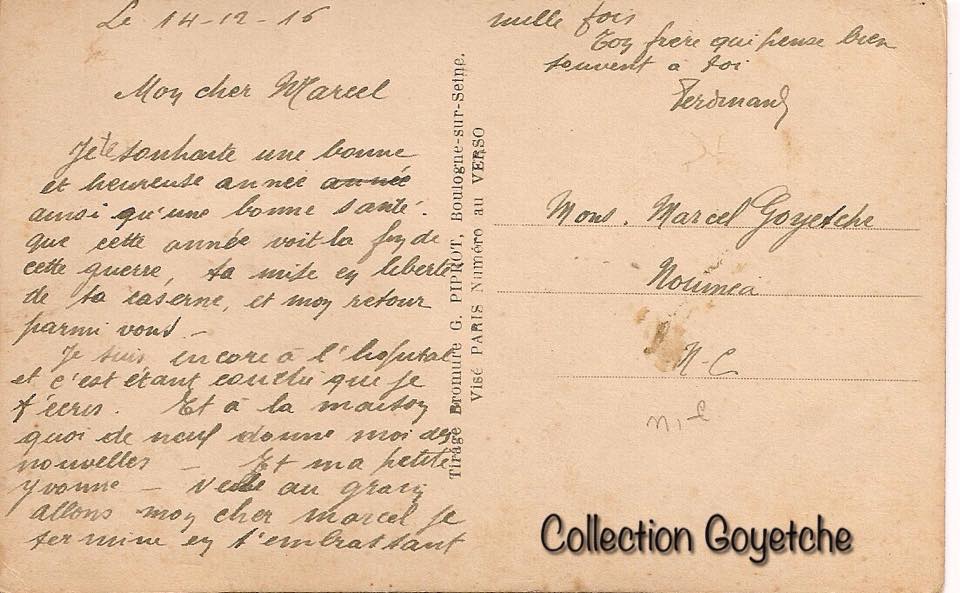 Le 14-12-16
Mon cher Marcel
Je te souhaite une bonne
et heureuse année année
ainsi qu'une bonne santé.
que cette année voit la fin de
cette guerre, ta mise en liberté
de ta caserne, et mon retour
parmi vous -
Je suis encore à l'hopital
et c'est étant couché que je
t'écris. Et à la maison
quoi de neuf donne moi des
nouvelles - Et ma petite
Yvonne - au
allons mon cher marcel je
termine en t'embrassant
mille fois
Ton frère qui pense bien
souvent à toi
Ferdinand
Tirage Bromure G. PIPROT, Boulogne-sur-Seine.
Visé PARIS Numéro au VERSO
Mons. Marcel Goyetche
Nouméa
N-C
Collection Goyetche